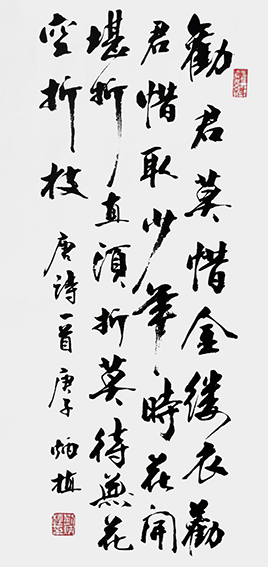 勸君莫惜金縷衣勸
君惜取少年時花開
堪折直須折莫待無花
空折枝
唐詩一首 庚子 炳植